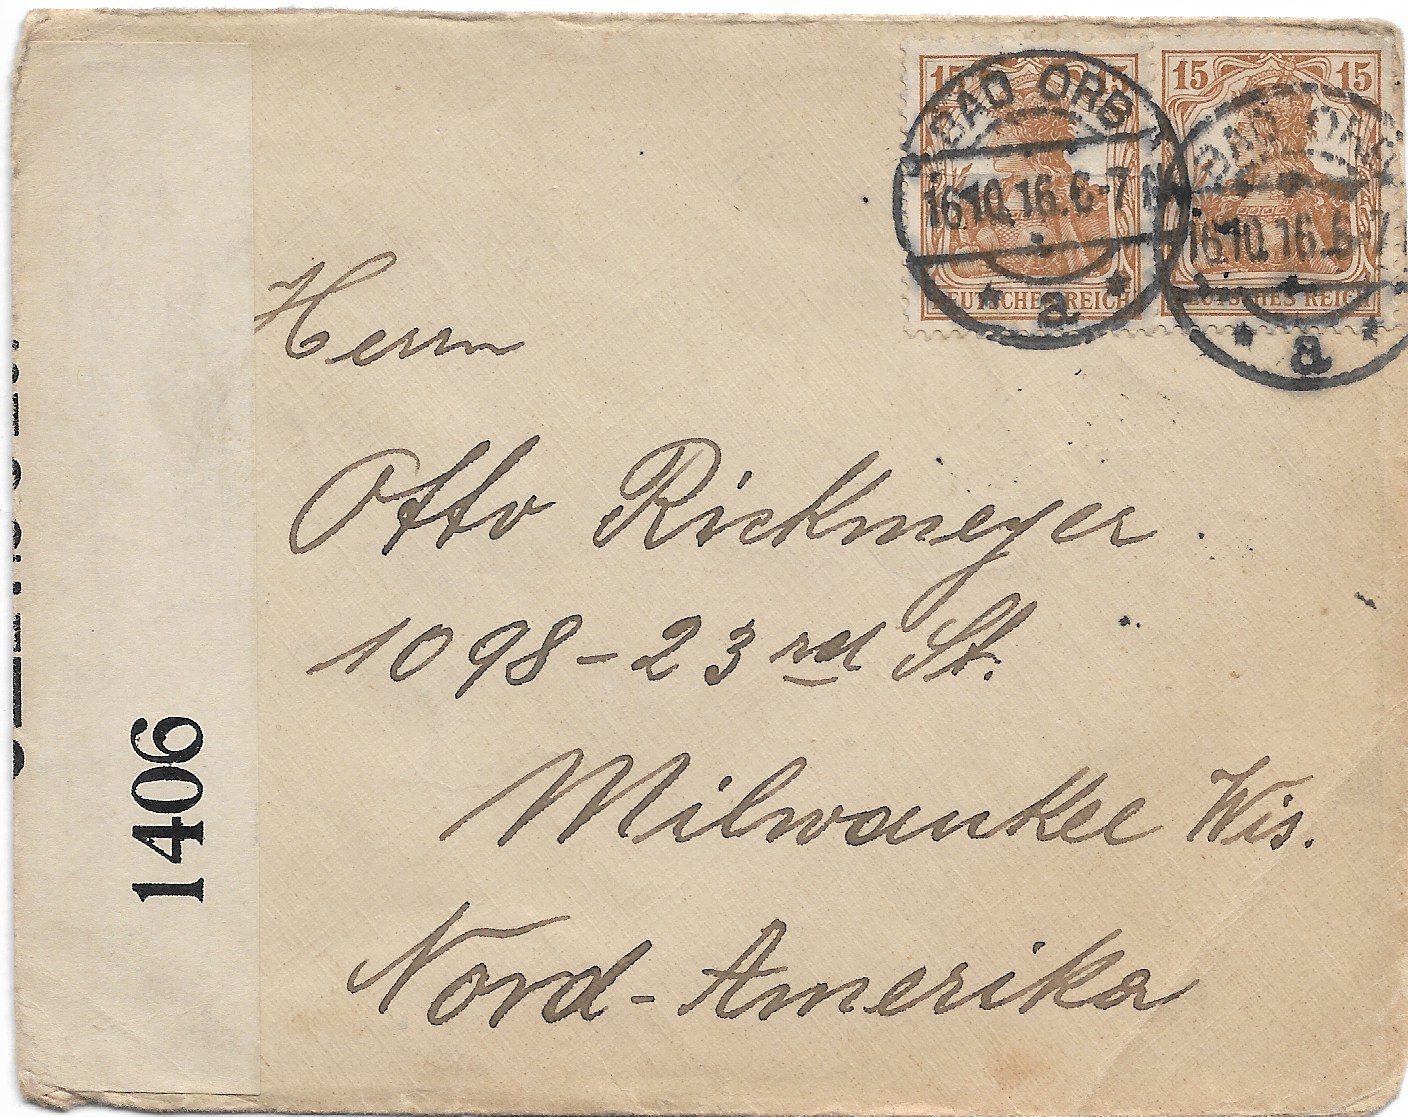 15 15
15 15
DEUTSCHES REICH
DEUTSCHES REICH
BAD ORB
16.10.16.6-7N
a
BAD ORB
16.10.16.6-7
a
Herrn
Otto Rickmeyer.
1098-23rd St.
Milwaukee Wis.
Nord-Amerika
1406